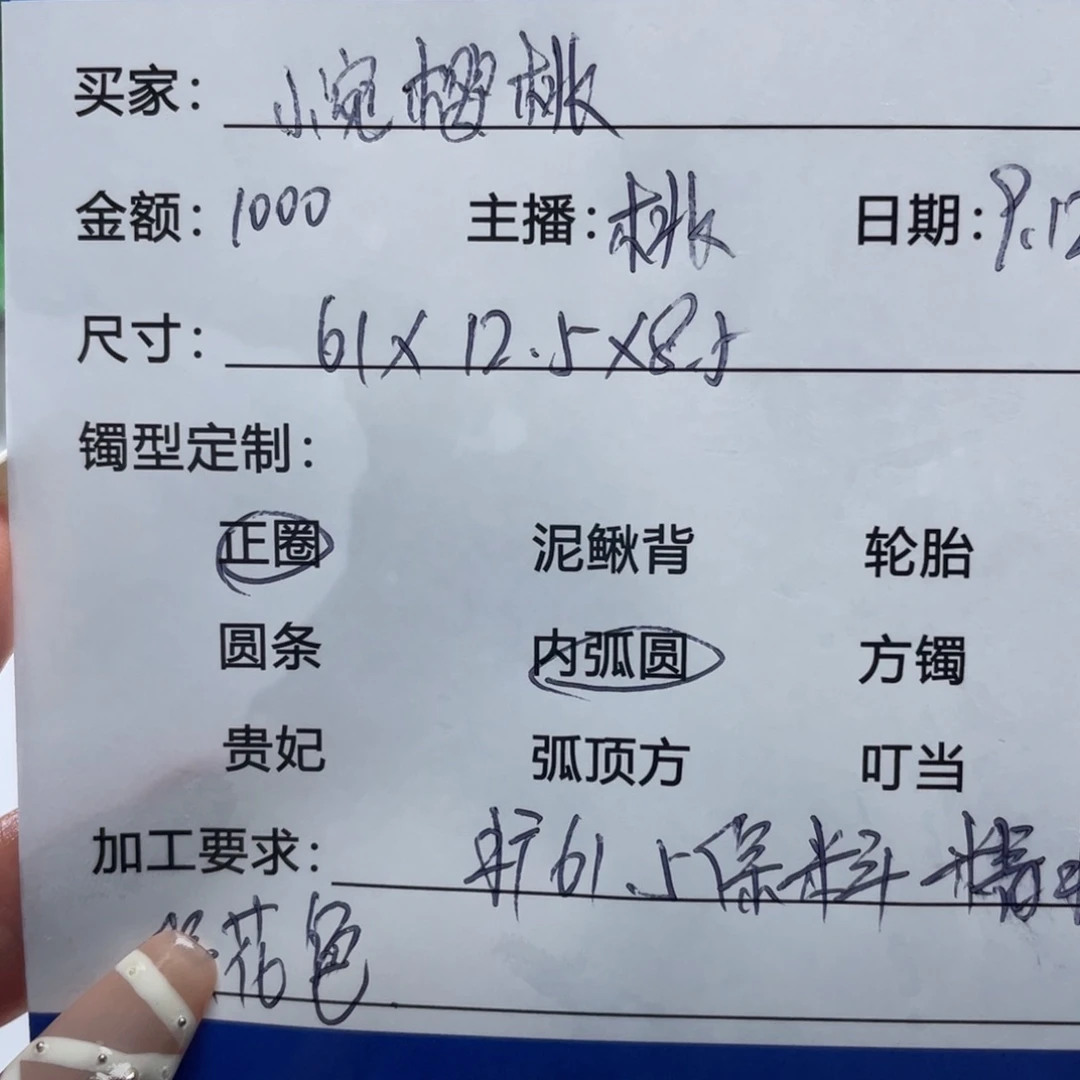 买家: 小宛樱桃
金额: 1000 主播: 桃 日期: 9.12
尺寸: 61×12.5×8.5
镯型定制:
正圈 泥鳅背 轮胎
圆条 内弧圆 方镯
贵妃 弧顶方 叮当
加工要求: 旷61.5保料精
花色